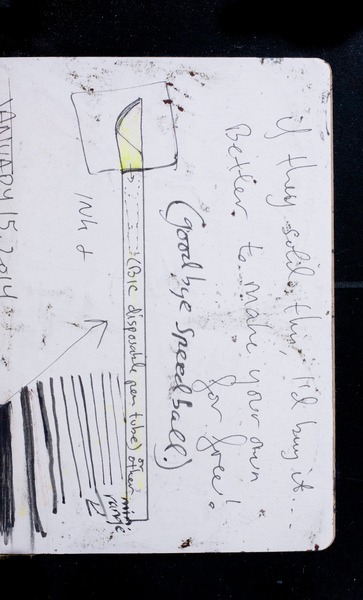 if they sold this, I'd buy it...
Better to make your own
for free!
(goodbye speedball)
(Bic disposable pen tube) or other
Ink +
range
JANUARY 5, 2014